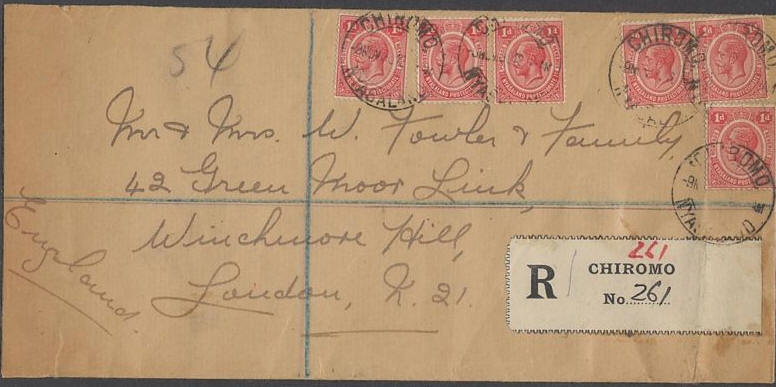 54
1d 1d
1d 1d
NYASALAND PROTECTORATE
CHIROMO
NYASALAND
CHIROMO
NYASALAND
1d 1d
CHIROMO
NYASALAND
Mr & Mrs. W. Fowler & Family,
42 Green Moor Link,
Winchmore Hill,
London, N. 21.
England.
261
R CHIROMO
No. 261